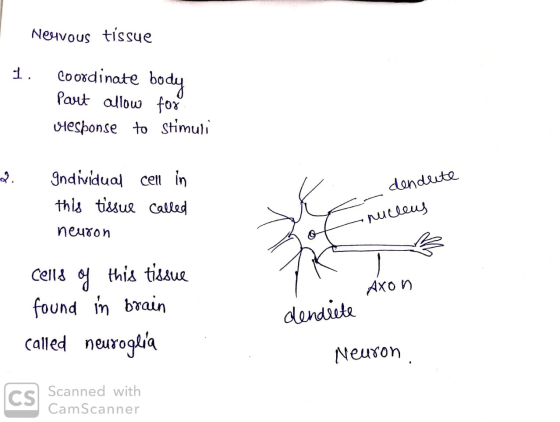 Nervous tissue
1. Coordinate body
Part allow for
response to stimuli
2. Individual cell in
this tissue called
neuron
cells of this tissue
found in brain
called neuroglia
dendrite
nucleus
Axon
dendrite
Neuron.
CS Scanned with
CamScanner